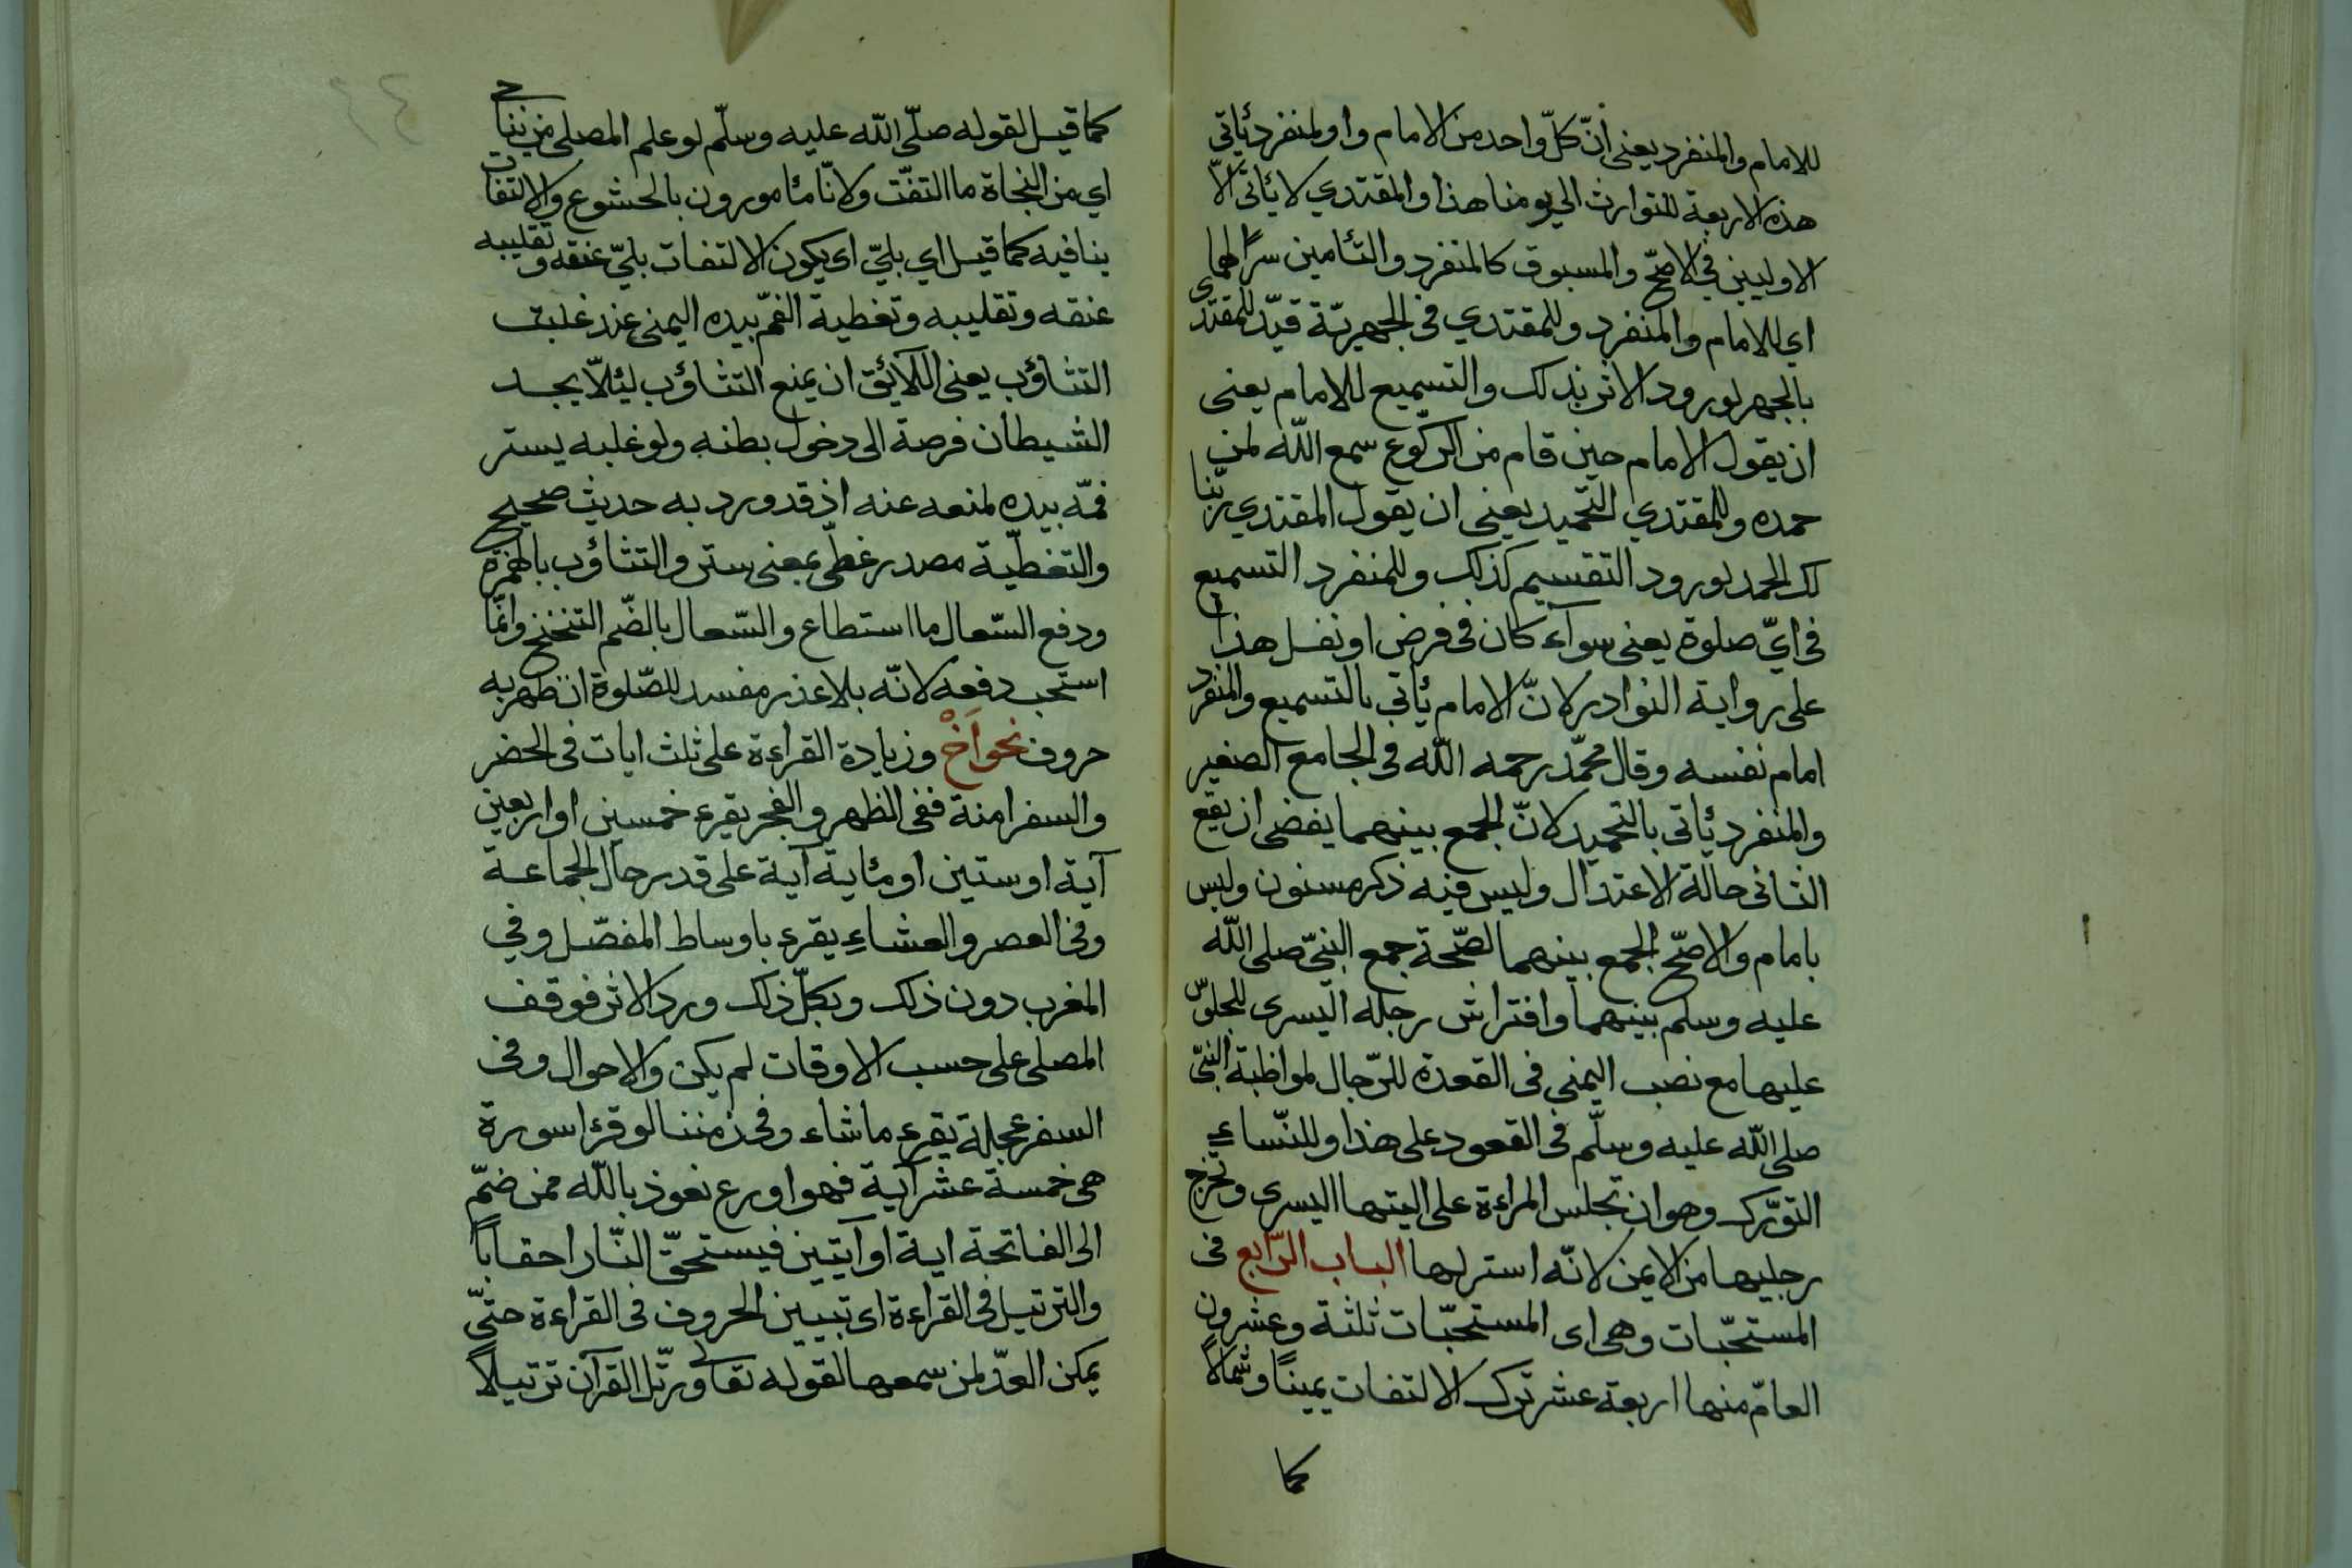 للامام والمنفرد يعنى انّ كلّ واحد من الامام واو لمنفرد يأتي
هذه الاربعة للتوارث الي يومنا هذا والمقتدي لا يأتى الّا
الاوليين في الاصحّ والمسبوق كالمنفرد والتأمين سرًّا لهما
اي للامام والمنفرد وللمقتدي فى الجهريّة قيّد للمقتدى
بالجهر لورود الاثر بذلك والتسميع للامام يعنى
ان يقول الامام حين قام من الركّوع سمع اللّه لمن
حمده وللمقتدي التحميد يعنى ان يقول المقتدي ربّنا
لك الحمد لورود التقسيم كذلك وللمنفرد التسميع
فى ايّ صلوة يعنى سوآء كان فى فرض او نفل هذا
على رواية النوادر لانّ الامام يأتي بالتسميع والمنفرد
امام نفسه وقال محمّد رحمه اللّه فى الجامع الصغير
والمنفرد يأتى بالتحميد لانّ الجمع بينهما يفضى ان يقع
الثانى حالة الاعتدال وليس فيه ذكر مسنون وليس
بامام والاصحّ الجمع بينهما لصّحة جمع النبيّ صلى اللّه
عليه وسلم بينهما وافتراش رجله اليسرى للجلوس
عليها مع نصب اليمنى فى القعدة للرّجال لمواظبة النبىّ
صلى اللّه عليه وسلّم فى القعود على هذا وللنّساء
التورّك وهو ان تجلس المراءة على اليتها اليسرى وتخرج
رجليها من الايمن لانّه استر لها الباب الرّابع فى
المستحبّات وهى اى المستحبّات ثلثة وعشرون
العامّ منها اربعة عشر ترك الالتفات يمينًا وشمالًا
كما
كما قيل لقوله صلّى اللّه عليه وسلّم لو علم المصلى من يناجى
اي من النجاة ما التفّت ولانّا مأمورون بالخشوع والالتفات
ينافيه كما قيل اي بليّ اى يكون الالتفات بليّ عنقه وتقليبه
عنقه وتقليبه وتغطية الفمّ بيده اليمنى عند غلبة
التثاؤب يعنى اللّائق ان يمنع التثاؤب لئلّا يجد
الشيطان فرصة الى دخول بطنه ولو غلبه يستر
فمّه بيده لمنعه عنه اذ قد ورد به حديث صحيح
والتغطّية مصدر غطّى بمعنى ستر والتثاؤب بالهمزة
ودفع السّعال ما استطاع والسّعال بالضّم التنخنح وانّما
استحب دفعه لانّه بلا عذر مفسد للصّلوة ان ظهر به
حروف نحو اَخْ وزيادة القراءة على ثلث ايات فى الحضر
والسفر امنة ففى الظهر والفجر يقرء خمسين او اربعين
آية او ستين او مئاية آية على قدر حال الجماعة
وفى العصر والعشاء يقرء باوساط المفصّل وفي
المغرب دون ذلك وبكلّ ذلك ورد الاثر فوقف
المصلى على حسب الاوقات لم يكن والاحوال وفى
السفر عجلة يقرء ما شاء وفى زمننا لو قرئ سورة
هى خمسة عشر آية فهو اورع نعوذ باللّه فمن ضمّ
الى الفاتحة اية او آيتين فيستحقّ النّار احقابًا
والترتيل فى القراءة اى تبيين الحروف فى القراءة حتىّ
يمكن العدّ لمن سمعها لقوله تعالى ورتّل القرآن ترتيلًا